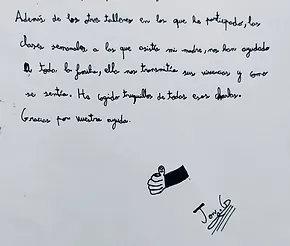 Además de los otros talleres en los que he participado, las
clases semanales a las que asiste mi madre, nos han ayudado
a toda la familia, ella nos transmitía sus vivencias y como
se sentía. He cogido truquillos de todas esas charlas.
Gracias por vuestra ayuda.
Jorge